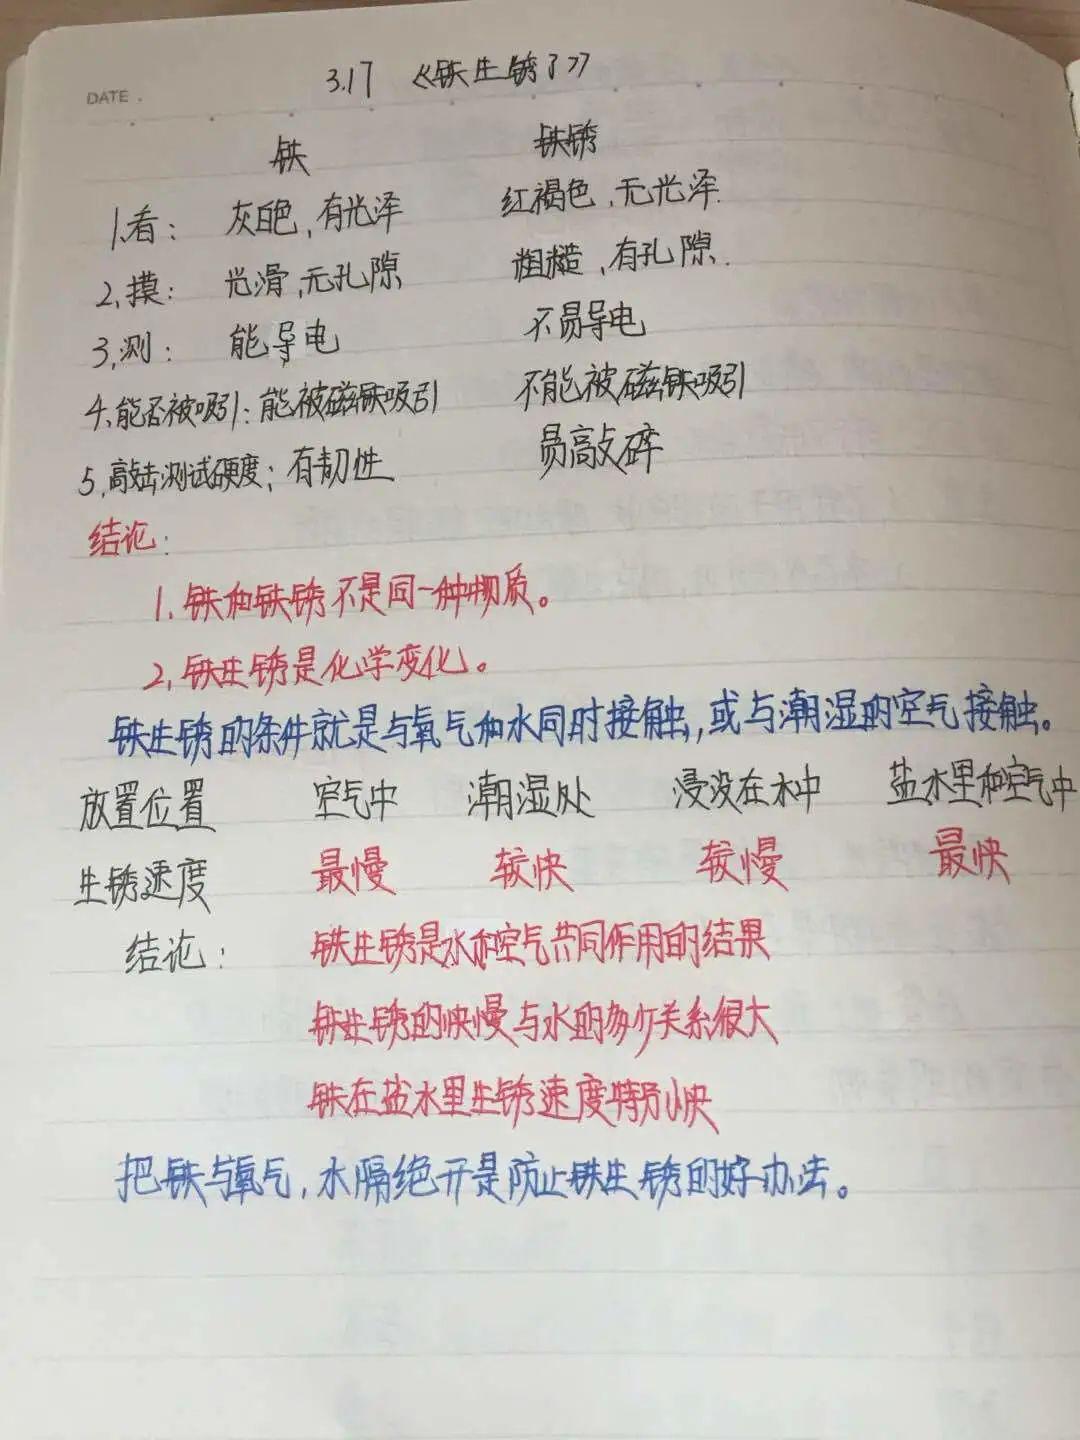 DATE .
3.17 《铁生锈了》
铁 铁锈
1.看： 灰白色、有光泽 红褐色、无光泽.
2.摸： 光滑、无孔隙 粗糙、有孔隙.
3.测： 能导电 不易导电
4.能否被吸引：能被磁铁吸引 不能被磁铁吸引
5.敲击测试硬度：有韧性 易敲碎
结论：
1.铁和铁锈不是同一种物质。
2.铁生锈是化学变化。
铁生锈的条件就是与氧气和水同时接触，或与潮湿的空气接触。
放置位置 空气中 潮湿处 浸没在水中 盐水里和空气中
生锈速度 最慢 较快 较慢 最快
结论： 铁生锈是水和空气共同作用的结果
铁生锈的快慢与水的多少关系很大
铁在盐水里生锈速度特别快
把铁与氧气，水隔绝开是防止铁生锈的好办法。